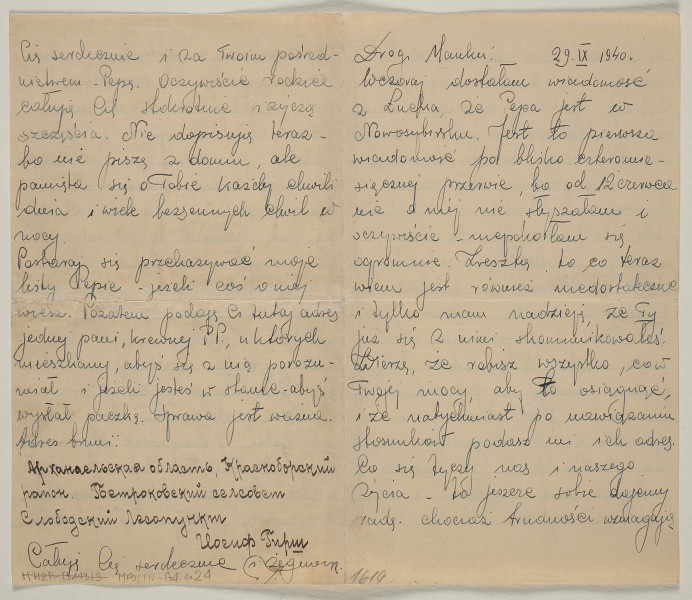 Drogi Maniku: 29.IX 1940.
Wczoraj dostałam wiadomość
z Łucka, że Pepa jest w
Nowosybirsku. Jest to pierwsza
wiadomość po blisko czteromie-
sięcznej przerwie, bo od 12 czerwca
nic o niej nie słyszałam i
oczywiście - niepokoiłam się
ogromnie. Zresztą to co teraz
wiem jest również niedostateczne
i tylko mam nadzieję, że Ty
już się z nimi skomunikowałeś.
Wierzę, że robisz wszystko, co w
Twojej mocy, aby to osiągnąć,
i że natychmiast po nawiązaniu
stosunków podasz mi ich adres.
Co się tyczy nas i naszego
życia - to jeszcze sobie dajemy
radę. chociaż trudności wzmagają
Cię serdecznie i za Twoim pośred-
nictwem - Pepę. Oczywiście rodzice
całują Cię stokrotnie i życzą
szczęścia. Nie dopisują teraz -
bo nie piszę z domu, ale
pamięta się o Tobie każdej chwili
dnia i wiele bezsennych chwil w
nocy.
Postaraj się przekazywać moje
listy Pepie jeżeli coś o niej
wiesz. Pozatem podaję Ci tutaj adres
jednej pani, krewnej P.P., u których
mieszkamy, abyś się z nią porozu-
miał i jeżeli jesteś w stanie - abyś
wysłał paczkę. Sprawa jest ważna.
Adres brmi:
Архангельская область, Красноборский
район. Петроковский сельсовет
Слободский Лесопункт
Иосиф Гирш
Całuję Cię serdecznie
M.HZP-B143/3 MPOLIN-A4.1.24
1619